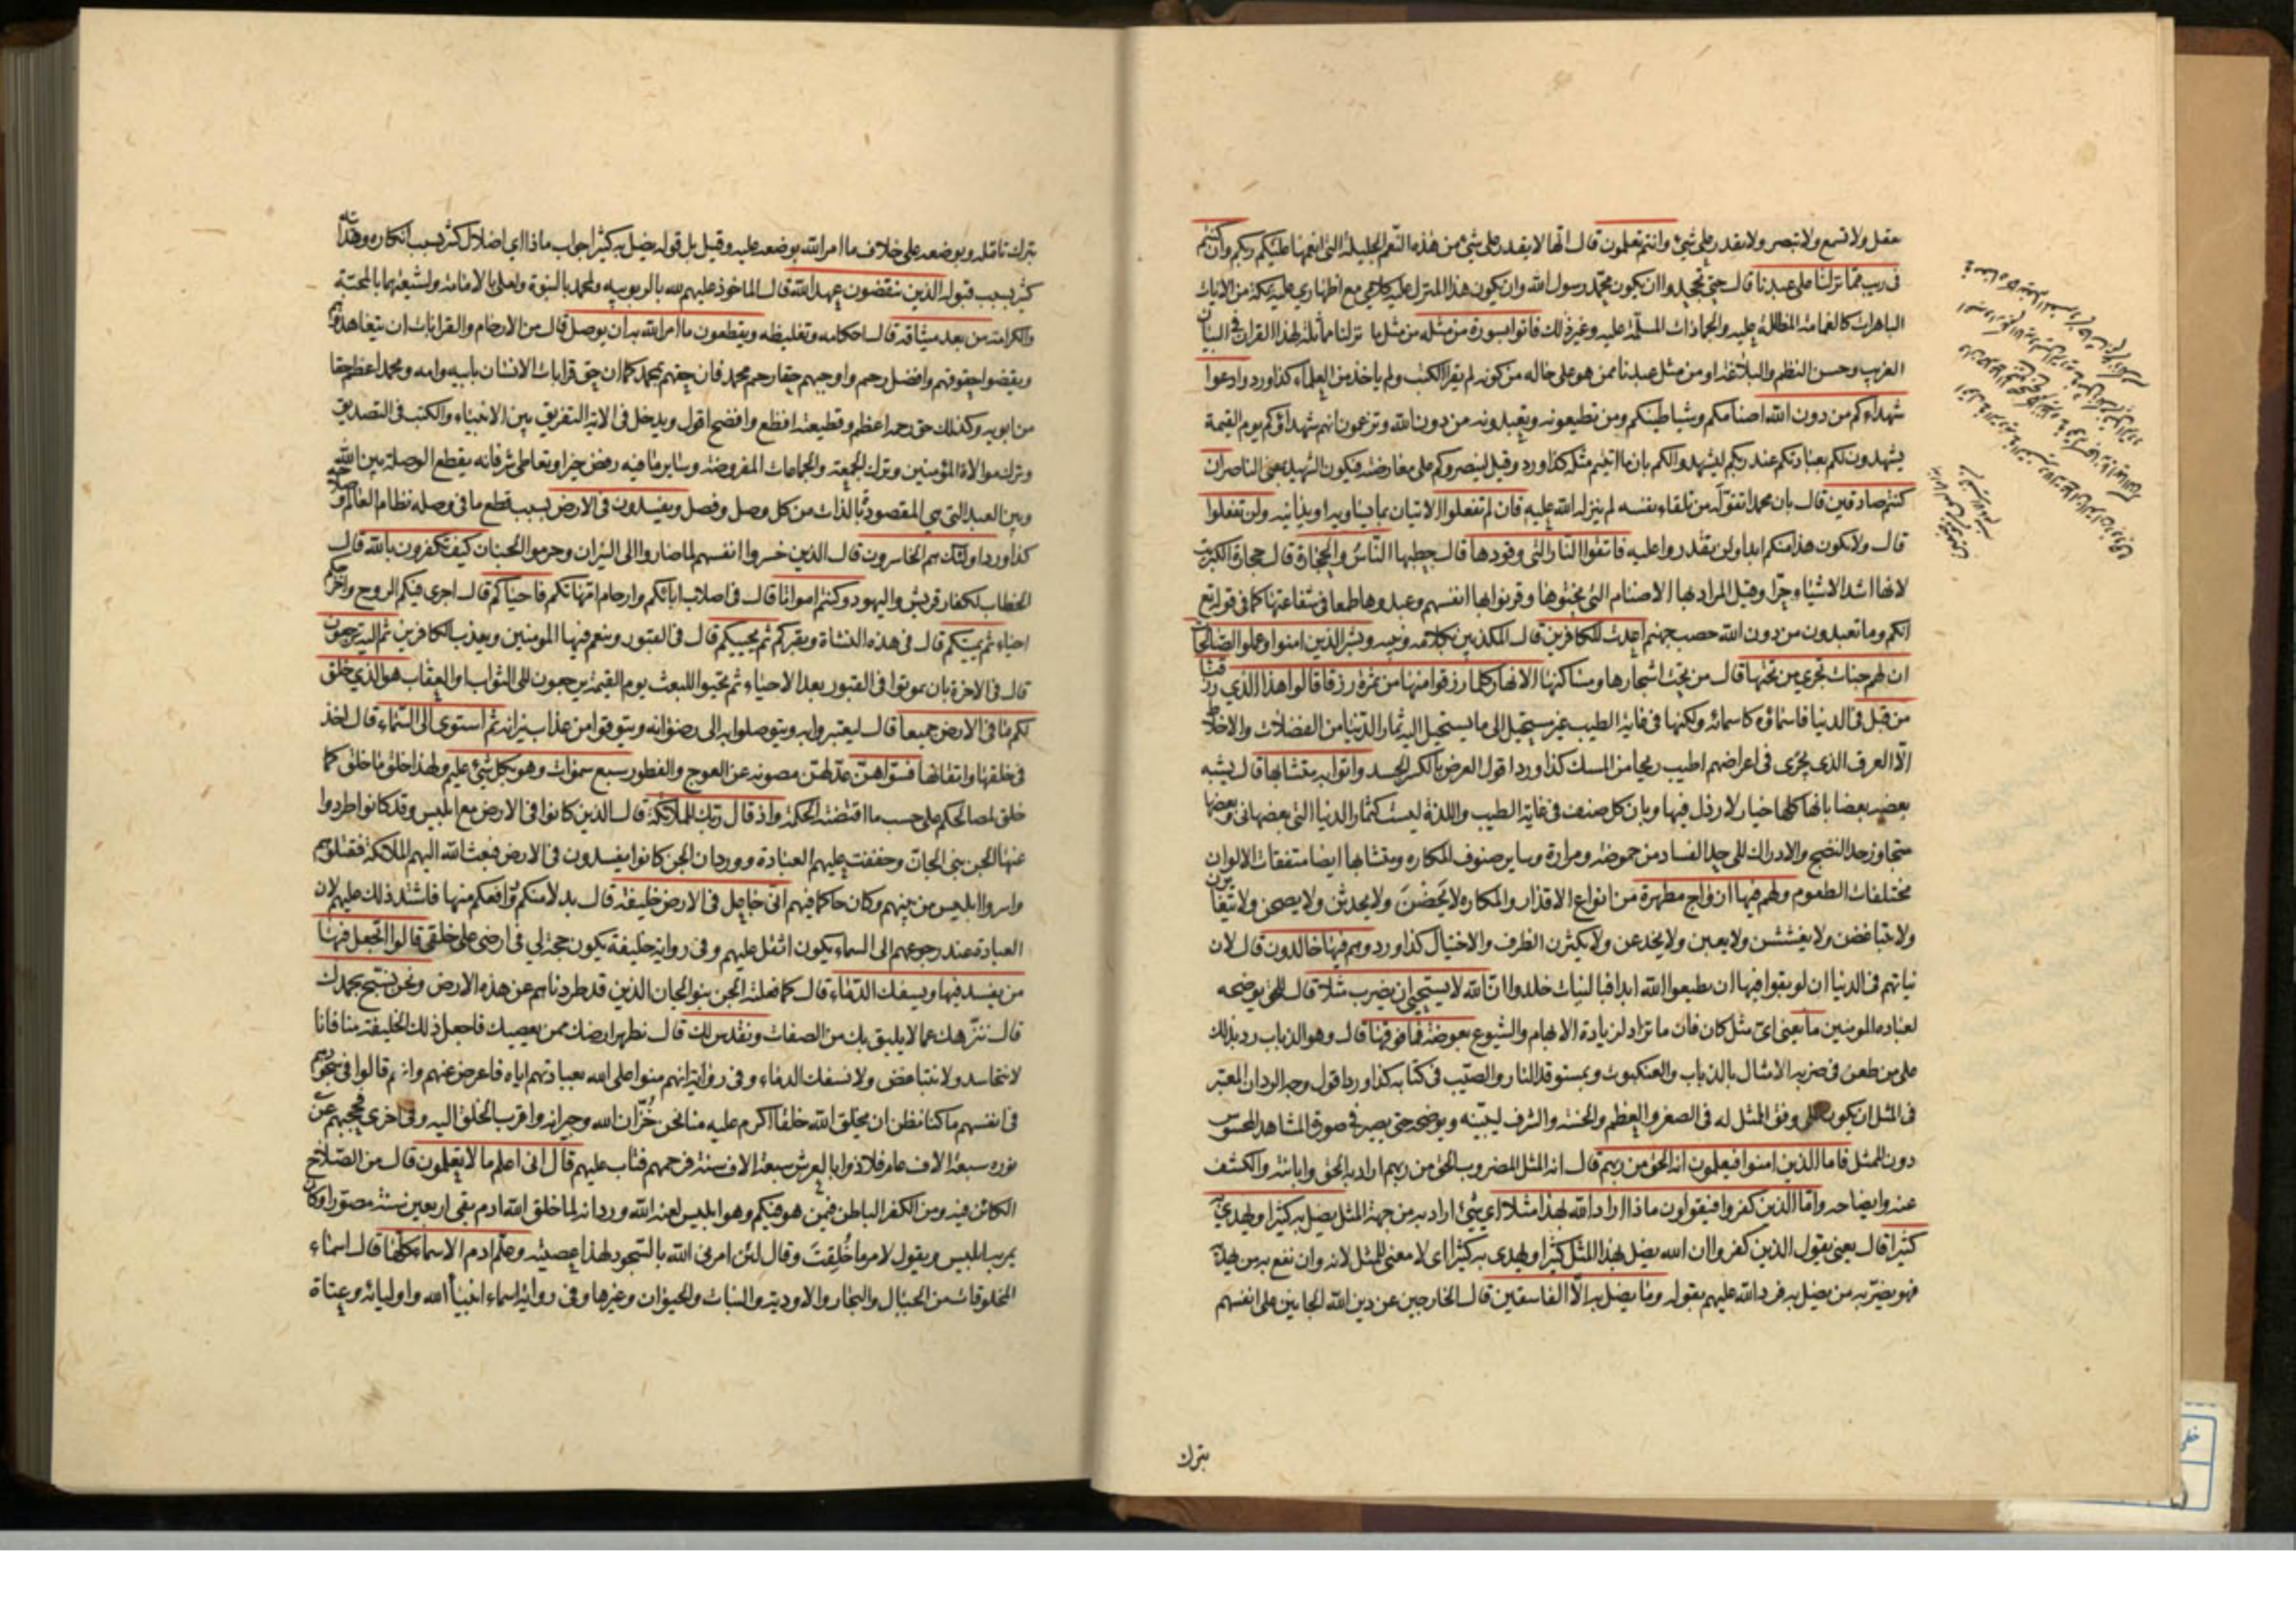 عقل ولا تسمع ولا تبصر ولا تقدر على شئ وانتم تعلمون قال انها لا يقدر على شئ من هذه النعم الجليلة التى انعمها عليكم ربكم وان كنتم
فى ريب مما نزلنا على عبدنا قال حتى تجحدوا ان يكون محمد رسول الله وان يكون هذا المنزل عليه كلامى مع اظهارى عليه بمكة من الايات
الباهرات كالغمامة المظللة عليه والجمادات المسلمة عليه وغير ذلك فاتوا بسورة من مثله من مثل ما نزلنا مماثلة لهذا القران فى البيان
الغريب وحسن النظم والبلاغة او من مثل عبدنا ممن هو على حاله من كونه لم يقرا الكتب ولم ياخذ من العلماء كذا ورد وادعوا
شهداءكم من دون الله اصنامكم وشياطينكم ومن تطيعونه وتعبدونه من دون الله وتزعمون انهم شهداؤكم يوم القيمة
يشهدون لكم بعبادتكم عند ربكم ليشهدوا لكم بان ما اتيتم مثله كذا ورد وقيل لينصروكم على معارضته فيكون الشهيد بمعنى الناصر ان
كنتم صادقين قال بان محمدا تقوله من تلقاء نفسه لم ينزله الله عليه فان لم تفعلوا الاتيان بما يساويه او يدانيه ولن تفعلوا
قال ولا يكون هذا منكم ابدا ولن يقدروا عليه فاتقوا النار التى وقودها قال حطبها الناس والحجارة قال حجارة الكبريت
لانها اشد الاشياء حرا وقيل المراد بها الاصنام التى نحتوها وقرنوا بها انفسهم وعبدوها طمعا فى شفاعتها كما فى قوله تع
انكم وما تعبدون من دون الله حصب جهنم اعدت للكافرين قال المكذبين بكلامه ونبيه وبشر الذين امنوا وعملوا الصالحات
ان لهم جنات تجرى من تحتها قال من تحت اشجارها ومساكنها الانهار كلما رزقوا منها من ثمرة رزقا قالوا هذا الذى رزقنا
من قبل فى الدنيا فاسماؤه كاسمائه ولكنها فى غاية الطيب غير مستحيل الى ما يستحيل اليه ثمار الدنيا من الفضلات والاخلاط
الا العرق الذى يجرى فى اعراضهم اطيب ريحا من المسك كذا ورد اقول العرض بالكسر الجسد واتوا به متشابها قال يشبه
بعضه بعضا بانها كلها خيار لا رذل فيها وبان كل صنف فى غاية الطيب واللذة ليست كثمار الدنيا التى بعضها نى وبعضها
متجاوز حد النضج والادراك الى حد الفساد من حموضة ومرارة وساير صنوف المكاره ومتشابها ايضا متفقات الالوان
مختلفات الطعوم ولهم فيها ازواج مطهرة من انواع الاقذار والمكاره لا يحضن ولا يحدثن ولا يصحن ولا يتغايرن
ولا يتباغضن ولا يغششن ولا يعبن ولا يخدعن ولا يكثرن الطرف والاختيال كذا ورد وهم فيها خالدون قال لان
نياتهم فى الدنيا ان لو بقوا فيها ان يطيعوا الله ابدا فبالنيات خلدوا ان الله لا يستحيى ان يضرب مثلا قال للحق يوضحه
لعباده المومنين ما يعنى اى مثل كان فان ما تزاد لزيادة الابهام والشيوع بعوضة فما فوقها قال وهو الذباب رد بذلك
على من طعن فى ضربه الامثال بالذباب والعنكبوت وبمستوقد النار والصيب فى كتابه كذا ورد اقول وجه الرد ان المعتبر
فى المثل ان يكون على وفق الممثل له فى الصغر والعظم والخسة والشرف ليبينه ويوضحه حتى يصير فى صورة المشاهد المحسوس
دون الممثل فاما الذين امنوا فيعلمون انه الحق من ربهم قال انه المثل المضروب الحق من ربهم اراد به الحق وابانته والكشف
عنه وايضاحه واما الذين كفروا فيقولون ماذا اراد الله بهذا مثلا اى شئ اراد به من جهة المثل يضل به كثيرا ويهدى به
كثيرا قال يعنى يقول الذين كفروا ان الله يضل بهذا المثل كثيرا ويهدى به كثيرا اى لا معنى للمثل لانه وان نفع به من يهديه
فهو يضر به من يضل به فرد الله عليهم بقوله وما يضل به الا الفاسقين قال الخارجين عن دين الله الجانين على انفسهم
بترك
بترك تامله وبوضعه على خلاف ما امر الله بوضعه عليه وقيل بل قوله يضل به كثيرا جواب ماذا اى اضلال كثير بسبب انكاره وهداية
كثير بسبب قبوله الذين ينقضون عهد الله قال الماخوذ عليهم لله بالربوبية ولمحمد بالنبوة ولعلى بالامامة ولشيعتهما بالمحبة
والكرامة من بعد ميثاقه قال احكامه وتغليظه ويقطعون ما امر الله به ان يوصل قال من الارحام والقرابات ان يتعاهدوهم
ويقضوا حقوقهم وافضل رحم واوجبهم حقا رحم محمد فان حقهم بمحمد كما ان حق قرابات الانسان بابيه وامه ومحمد اعظم حقا
من ابويه وكذلك حق رحمه اعظم وقطيعته افظع وافضح اقول ويدخل فى الاية التفريق بين الانبياء والكتب فى التصديق
وترك موالاة المؤمنين وترك الجمعة والجماعات المفروضة وساير ما فيه رفض خير او تعاطى شر فانه يقطع الوصلة بين الله
وبين العبد التى هى المقصودة بالذات من كل وصل وفصل ويفسدون فى الارض بسبب قطع ما فى وصله نظام العالم وصلاحه
كذا ورد اولئك هم الخاسرون قال الذين خسروا انفسهم لما صاروا الى النيران وحرموا الجنان كيف تكفرون بالله قال
الخطاب لكفار قريش واليهود وكنتم امواتا قال فى اصلاب ابائكم وارحام امهاتكم فاحياكم قال اجرى فيكم الروح واخرجكم
احياء ثم يميتكم قال فى هذه النشاة ويقبركم ثم يحييكم قال فى القبور وينعم فيها المومنين ويعذب الكافرين ثم اليه ترجعون
قال فى الاخرة بان تموتوا فى القبور بعد الاحياء ثم تحيوا للبعث يوم القيمة ترجعون الى الثواب او العقاب هو الذى خلق
لكم ما فى الارض جميعا قال ليعتبروا به ويتوصلوا به الى رضوانه ويتوقوا من عذاب نيرانه ثم استوى الى السماء قال اخذ
فى خلقها واتقانها فسواهن عدلهن مصونة عن العوج والفطور سبع سموات وهو بكل شئ عليم ولهذا خلق ما خلق كما
خلق لمصالحكم على حسب ما اقتضته الحكمة واذ قال ربك للملائكة قال الذين كانوا فى الارض مع ابليس وقد كانوا طردوا
عنها الجن بنى الجان وخففت عليهم العبادة وورد ان الجن كانوا يفسدون فى الارض فبعث الله اليهم الملائكة فقتلوهم
واسروا ابليس من بينهم وكان حاكما فيهم انى جاعل فى الارض خليفة قال بدلا منكم ورافعكم منها فاشتد ذلك عليهم لان
العبادة عند رجوعهم الى السماء يكون اثقل عليهم وفى رواية خليفة يكون حجة لى فى ارضى على خلقى قالوا اتجعل فيها
من يفسد فيها ويسفك الدماء قال كما فعلته الجن بنو الجان الذين قد طردناهم عن هذه الارض ونحن نسبح بحمدك
قال ننزهك عما لا يليق بك من الصفات ونقدس لك قال نطهر ارضك ممن يعصيك فاجعل ذلك الخليفة منا فانا
لا نتحاسد ولا نتباغض ولا نسفك الدماء وفى رواية انهم منوا على الله بعبادتهم اياه فاعرض عنهم وانهم قالوا فى سجودهم
فى انفسهم ما كنا نظن ان يخلق الله خلقا اكرم عليه منا نحن خزان الله وجيرانه واقرب الخلق اليه وفى اخرى فحجبهم عن
نوره سبعة الاف عام فلاذوا بالعرش سبعة الاف سنة فرحمهم فتاب عليهم قال انى اعلم ما لا تعلمون قال من الصلاح
الكائن فيه ومن الكفر الباطن فيمن هو فيكم وهو ابليس لعنه الله ورد انه لما خلق الله ادم بقى اربعين سنة مصورا وكان
يمر به ابليس ويقول لامر ما خلقت وقال لئن امرنى الله بالسجود لهذا عصيته وعلم ادم الاسماء كلها قال اسماء
المخلوقات من الجبال والبحار والاودية والنبات والحيوان وغيرها وفى رواية اسماء انبياء الله واوليائه وعتاة